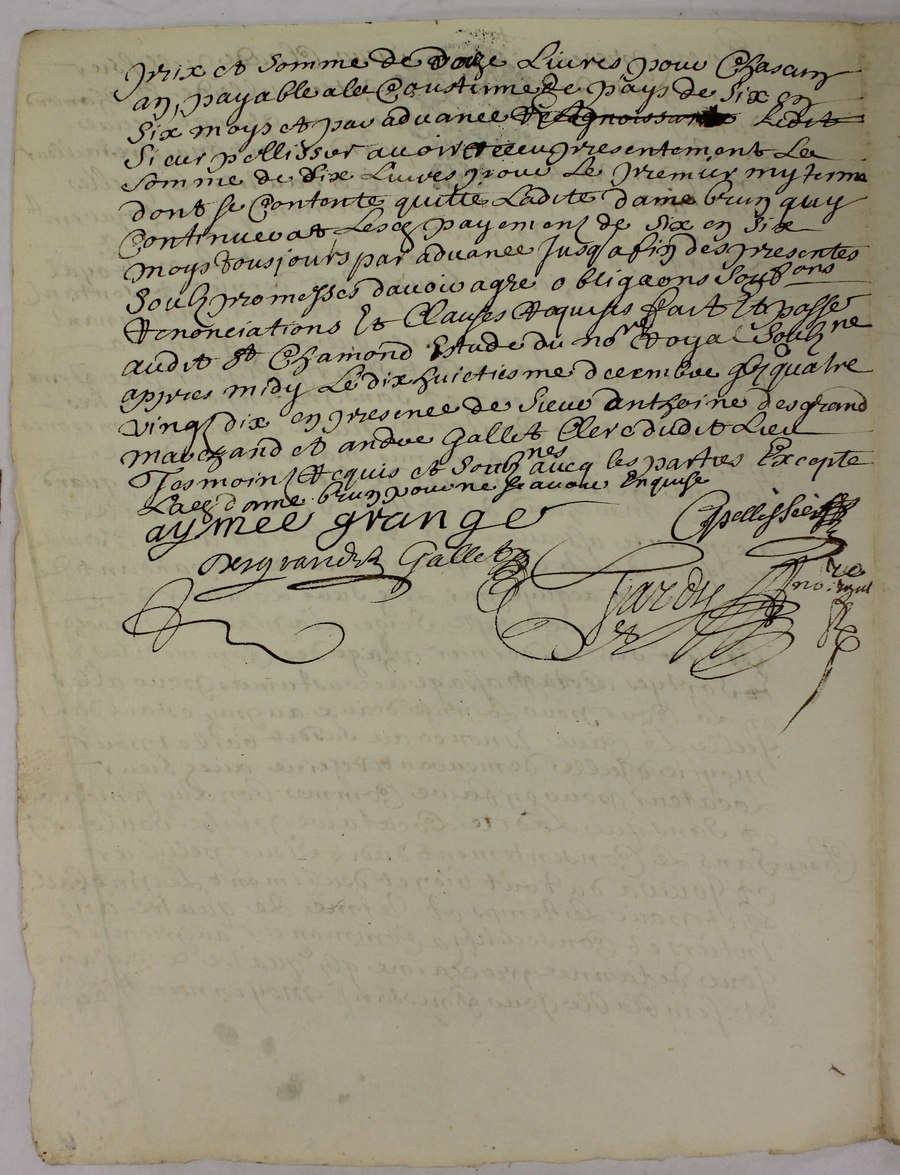 prix et somme de douze Livres pour Chascun
an, payable a la Coustume de pays de six en
six moys et par advance Recognoissant Ledit
Sieur pellissier avoir Receu presentement La
somme de six Livres pour Le premier my terme
dont se Contente quitte Ladite dame brun quy
Continuerat Lesd payement de six en six
moys tousjours par advance Jusqa fin des presentes
Soubz promesses davoir agre obligaons Soubons
Renonciations Et Clauses Requises fait Et passé
audit St Chamond Estude du nore Royal Soubne
appres midy Le dix huictiesme decembre gbjc quatre
vingt dix en presence de Sieur anthoine desgrand
marchand et andre Gallet Clerc dudit Lieu
Tesmoins Requis et Soubnes avecq les parties Excepte
Lad dame brun pour ne scavoir Enquise
aymee grange
Cpellissier
Desgrand Gallet
Jardy
nore royal